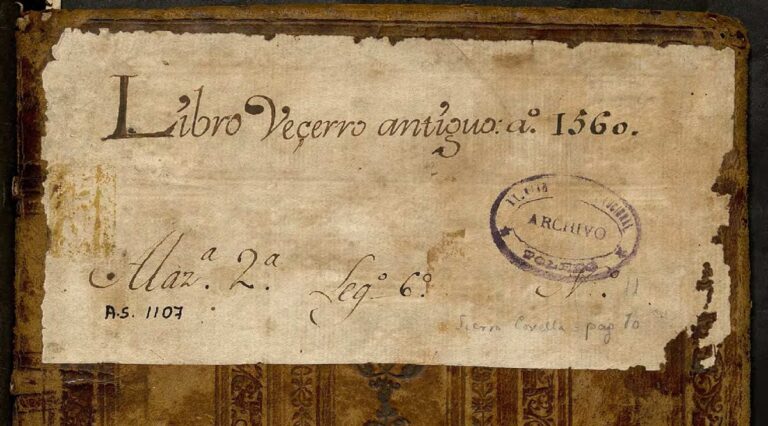 Libro Veçerro antiguo: aº. 1560.
ARCHIVO
TOLEDO
Alazª. 2ª. Legº. 6º. Nº. 11
A.S. 1107
pag 10